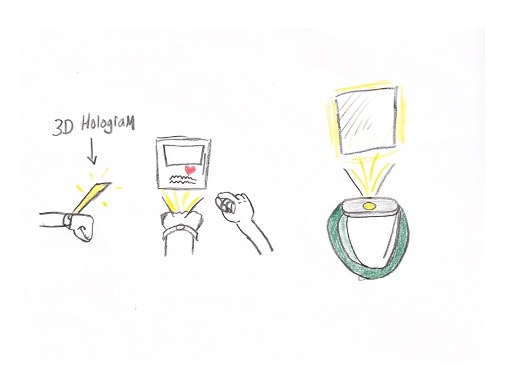 3D Hologram